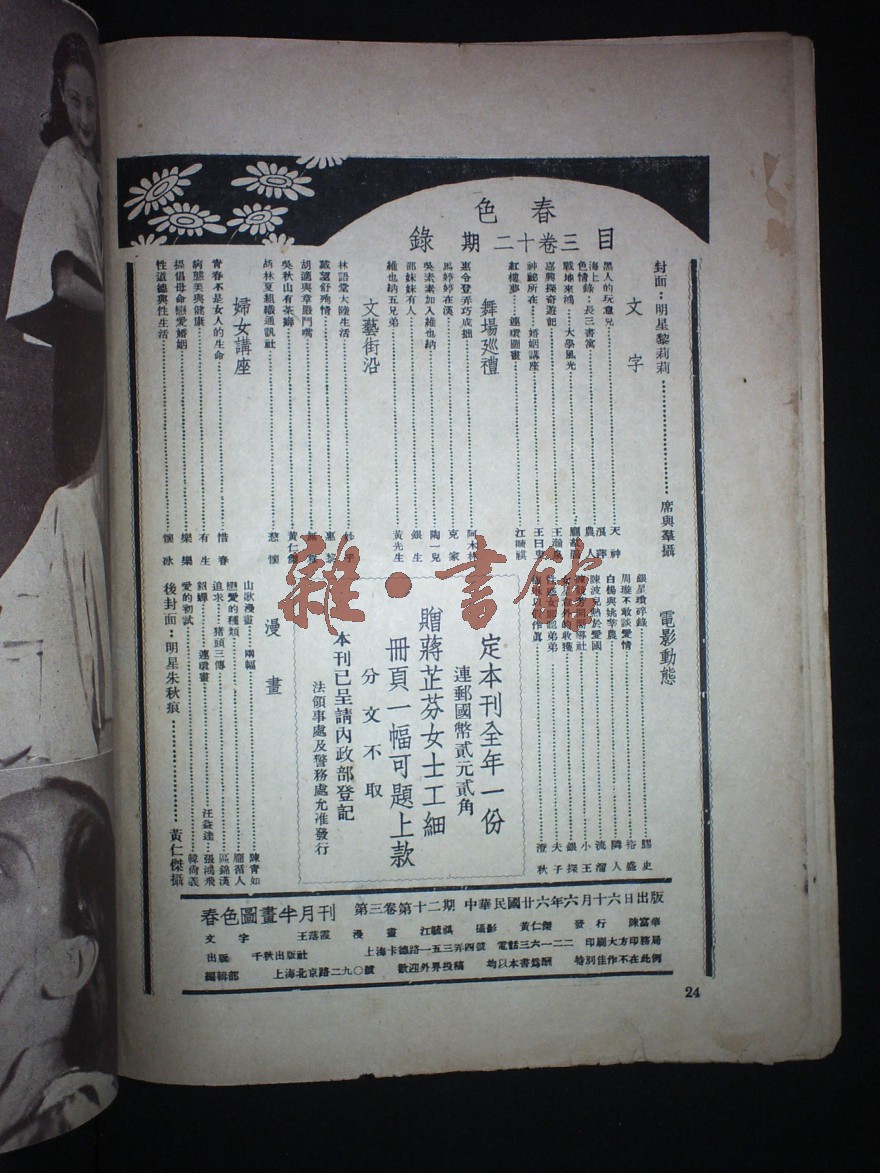 春色
目錄
三卷十二期
封面：明星黎莉莉 席與羣攝
文字
黑人的玩意兒 天神
海上錄：長三書寓
色情 農人
戰地來鴻：大學風光
嘉興探奇遊記
神祕所在：婚姻講座 王日
紅樓夢：連環圖畫 江毓祺
舞場巡禮
惠令登弄巧成拙 阿木林
馬婷婷在漢 克家
吳素素加入維也納 陶一兒
部妹妹有人 銀生
維也納五兄弟 黃先生
文藝街沿
林語堂大陸生活
戴望舒殉情 惠黎
胡適與章嚴鬥嘴
吳秋山有茶癖 黃仁傑
胡林夏組織通訊社 愁懷
婦女講座
青春不是女人的生命 惜春
病態美與健康 有生
提倡母命戀愛婚姻 樂樂
性道德與性生活 懷冰
電影動態
銀星瑣碎錄 驛史
周璇不敢談愛情 裕盛
白楊與姚莘農 隣人
陳波兒熱於愛國 流溜
小王
銀探
夫子
澄秋
定本刊全年一份
連郵國幣貳元貳角
贈蔣芷芬女士工細
冊頁一幅可題上款
分文不取
本刊已呈請內政部登記
法領事處及警務處允准發行
漫畫
山歌漫畫：兩幅 陳青如
戀愛的種類 龐蓄人
追求：豬頭三傳 區錦漢 張鴻飛
貂蟬：連環畫 汪益達
愛的初試 韓尚義
後封面：明星朱秋痕 黃仁傑攝
春色圖畫半月刊 第三卷第十二期 中華民國廿六年六月十六日出版
文字 王落霞 漫畫 江毓祺 攝影 黃仁傑 發行 陳富華
出版 千秋出版社 上海卡德路一五三弄四號 電話三六一二二 印刷大方印務局
編輯部 上海北京路二九〇號 歡迎外界投稿 均以本書為酬 特別佳作不在此例
24
雜·書館